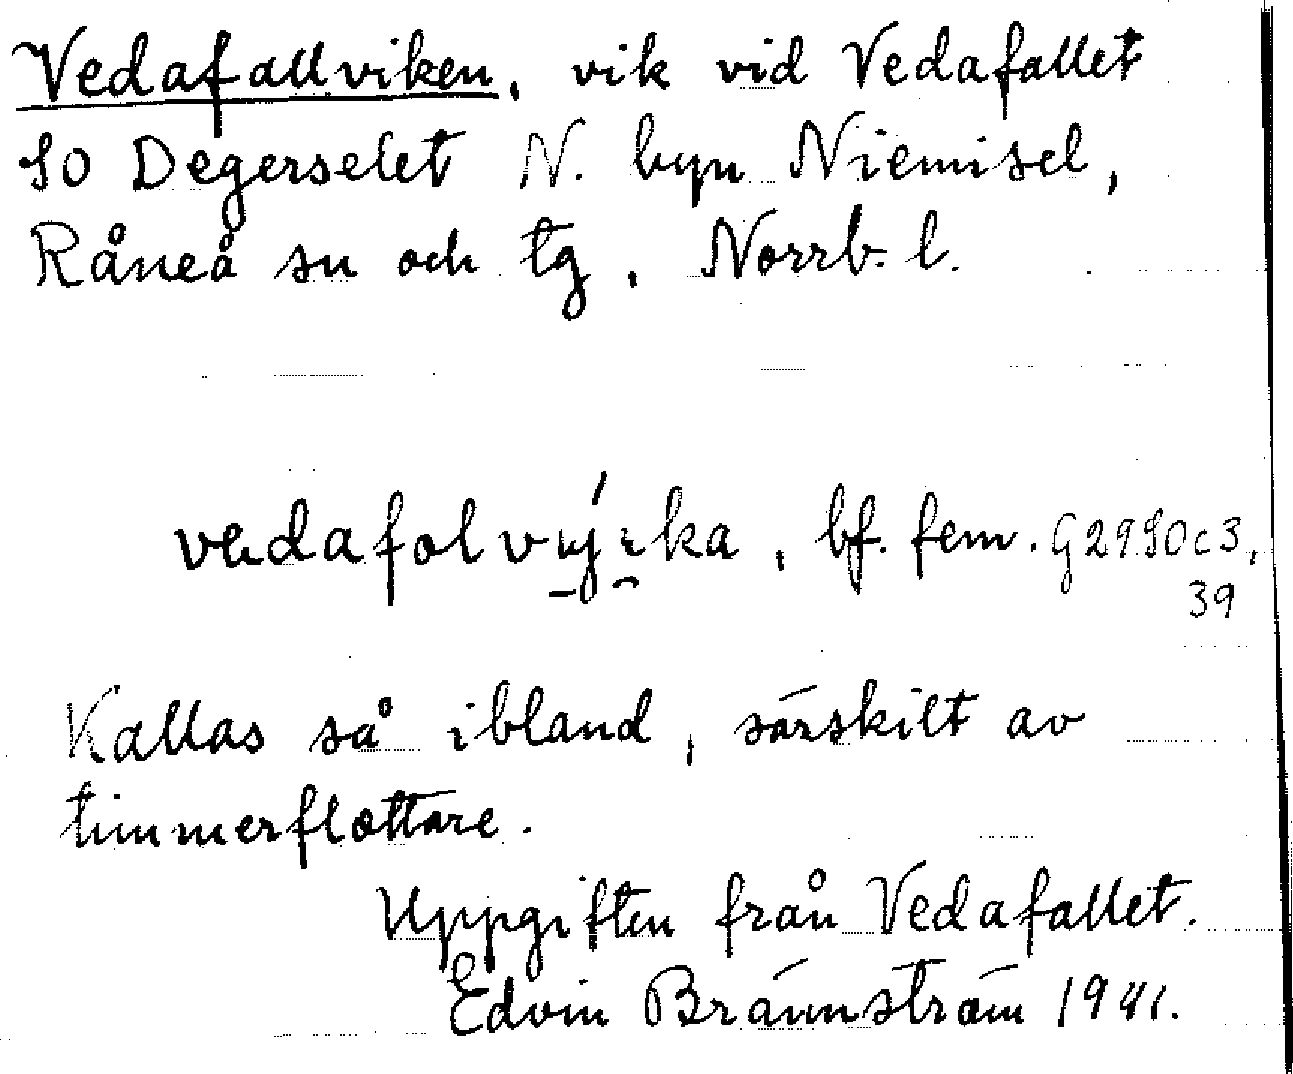 Vedafallviken, vik vid Vedafallet
SO Degerselet N. byn Niemisel,
Råneå sn och tg, Norrb. l.
vedafolvýɪka, bf. fem. G29SOc3,
39
Kallas så ibland, särskilt av
timmerflottare.
Uppgiften från Vedafallet.
Edvin Brännström 1941.